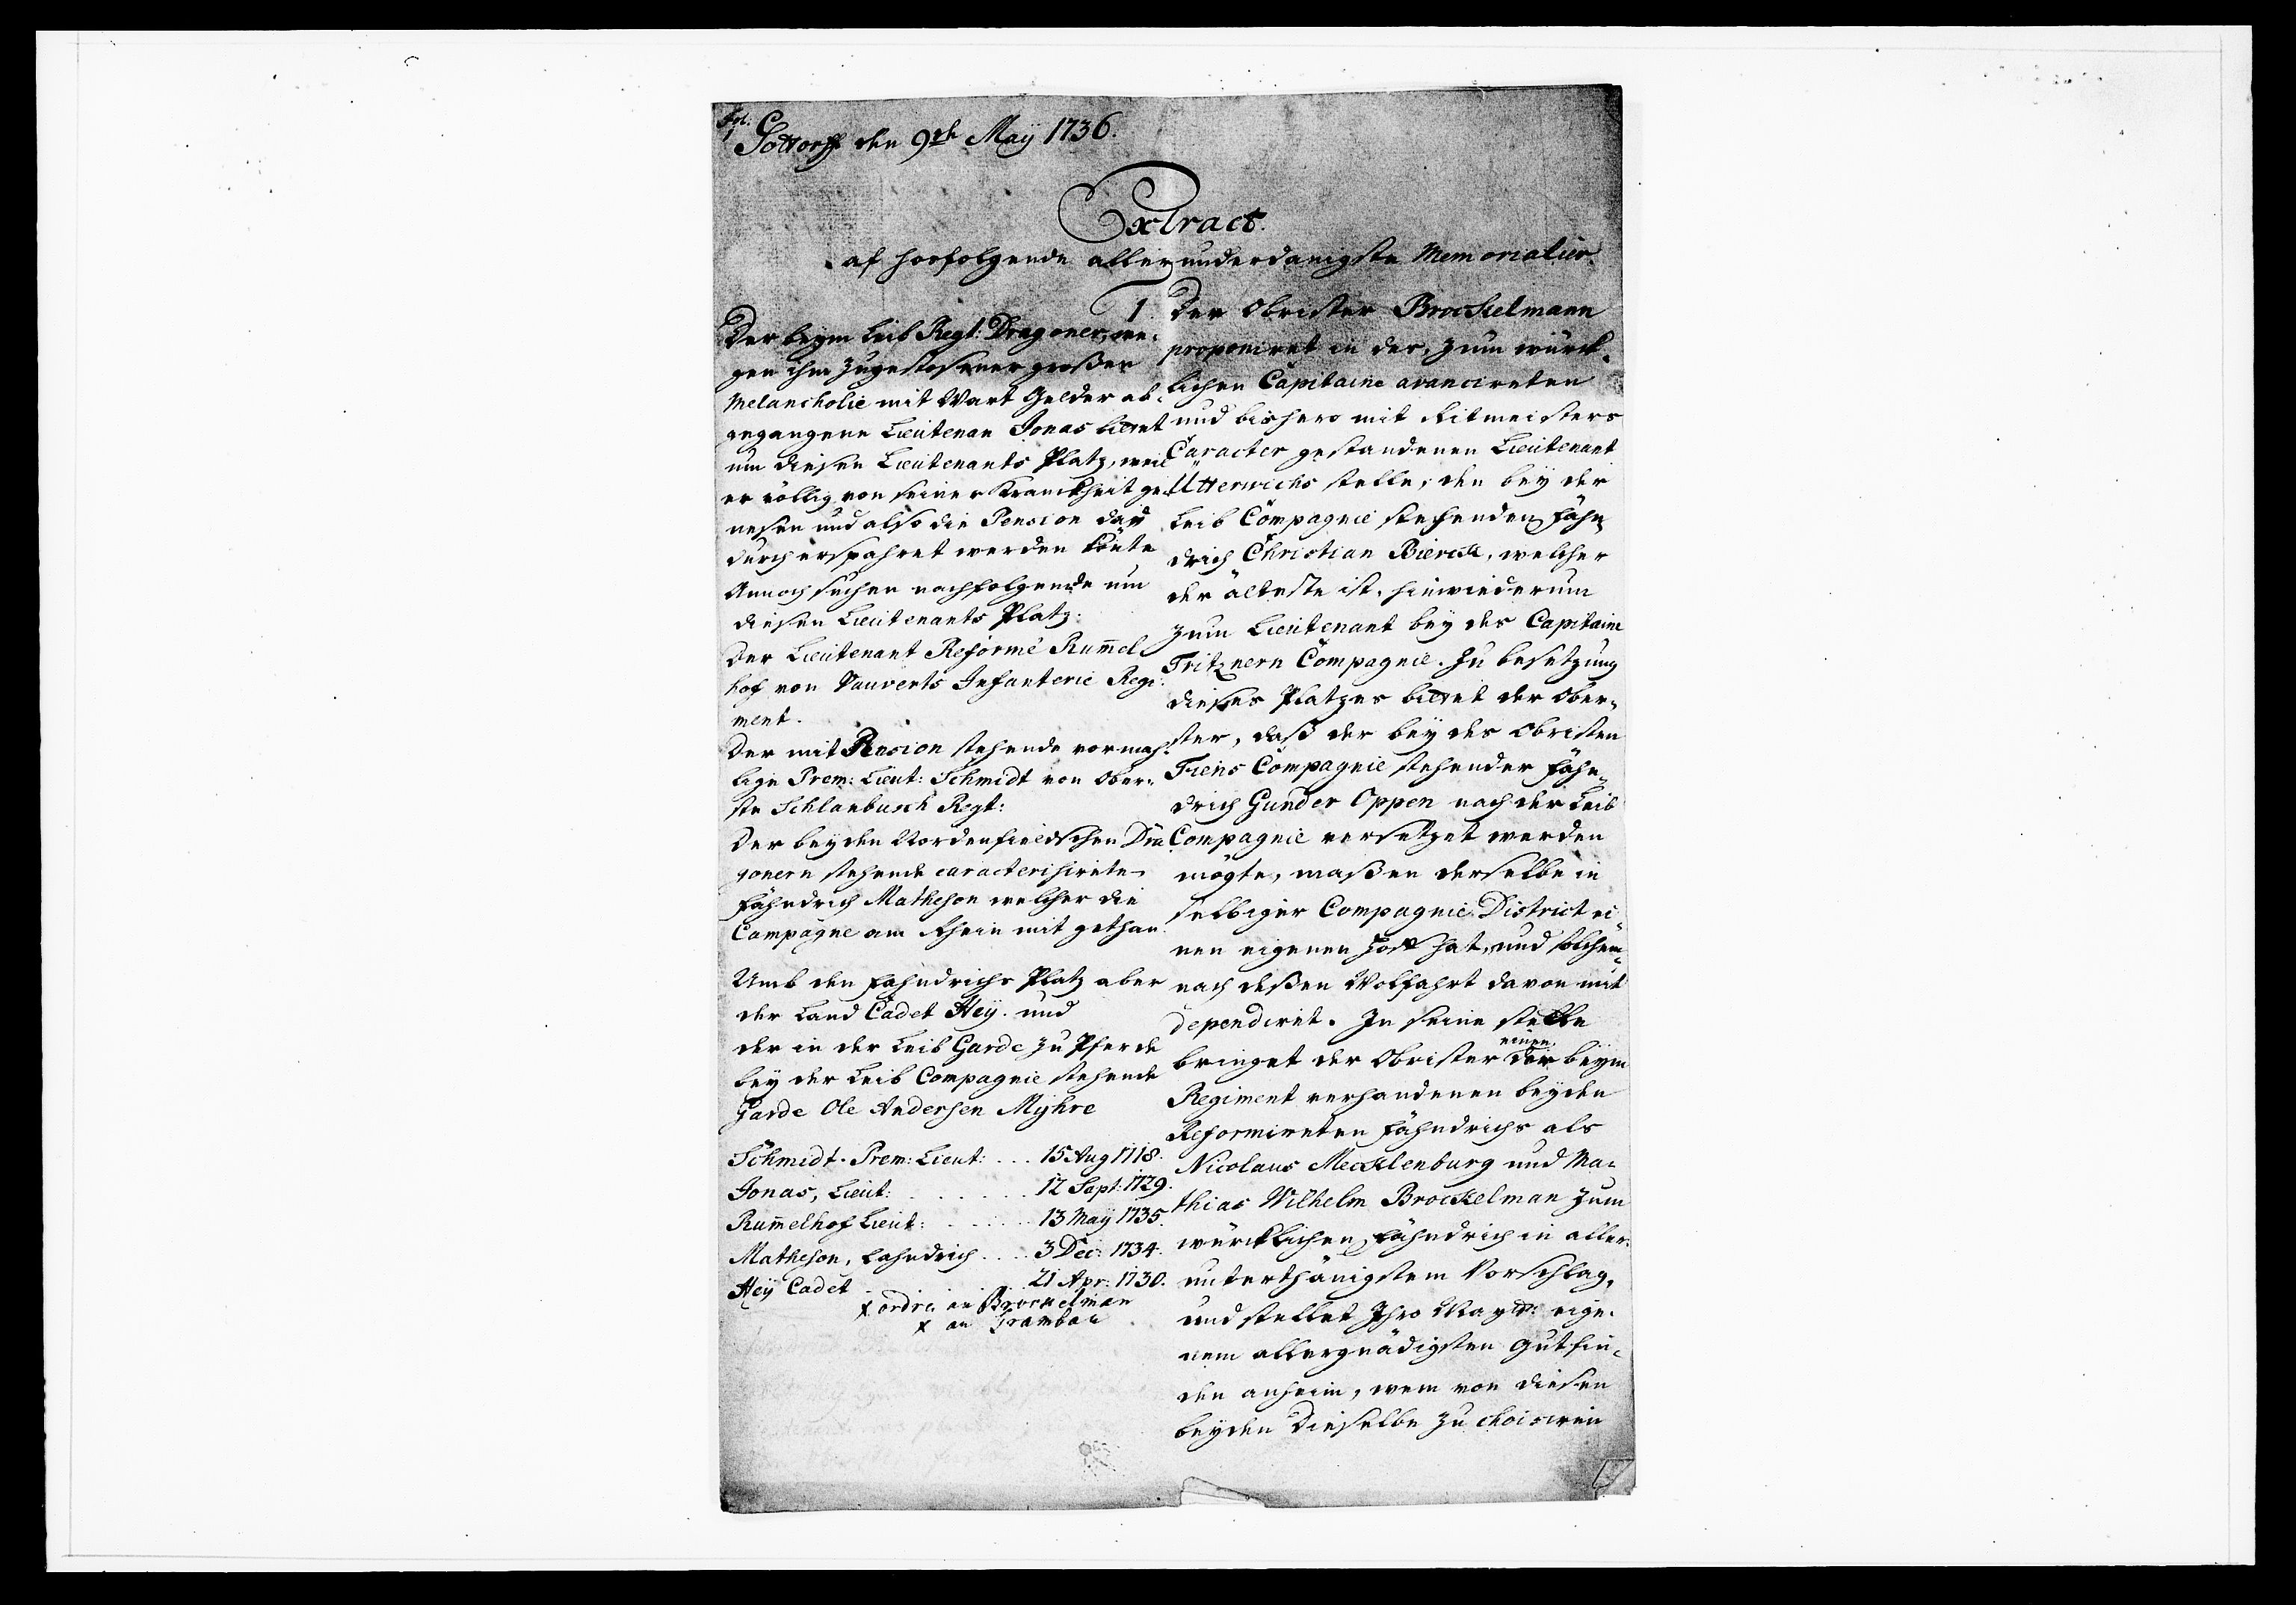 Fol:
1
Gottorff den 9th Maÿ 1736.
Extract
af hosfolgende allerunderdanigste Memorialier.
Der beym Leib Regt: Dragoner, we-
gen ihm zugestosener großer
Melancholie mit Wart Gelder ab-
gegangene Lieutenan Jonas bittet
um diesen Lieutenants Platz, weil
er völlig von seiner Kranckheit ge-
nesen und also die Pension da-
durch erspahret werden könte
Annoch suchen nachfolgende um
diesen Lieutenants Platz.
Der Lieutenant Reformé Rum̄el
hof von Vauverts Infanterie Regi-
ment.
Der mit Pension stehende vormah-
lige Prem: Lieut: Schmidt von Ober-
ste Schlanbusch Regt:
Der bey den Nordenfieldschen Dra-
gonern stehende caracterisirte
Fähndrich Matheson welcher die
Campagne am Rhein mit gethan
Umb den Fähndrichs Platz aber
der Land Cadet Heÿ. und
der in der Leib Garde zu Pferde
beÿ der Leib Compagnie stehende
Garde Ole Andersen Mÿhre
Schmidt. Prem: Lieut: ... 15 Aug 1718.
Jonas, Lieut: ....... 12 Sept: 1729.
Rum̄elhof Lieut: ...... 13 Maÿ 1735.
Matheson, Fahndrich .... 3 Dec: 1734.
Heÿ Cadet ... 21 Apr: 1730.
x ordre an Brockelman
x an Frambau
1. Der Obrister Brockelmann
proponiret in des, zum würck-
lichen Capitaine avancireten
und bishero mit Ritmeisters
Caracter gestandenen Lieutenant
Ütterwichs stelle, den beÿ der
Leib Compagnie stehenden Fähn-
drich Christian Bierck, welcher
der älteste ist, hinwiederum
zum Lieutenant beÿ des Capitaine
Fritznern Compagnie. Zu besetzung
dieses Platzes bittet der Ober-
ster, daß der beÿ des Obristen
Frens Compagnie stehender Fähn-
drich Gunder Oppen nach der Leib
Compagnie versetzet werden
mögte, maßen derselbe in
selbiger Compagnie District ei-
nen eigenen Hoff hat, und solchem-
nach deßen Wolfahrt davon mit
dependiret. In seine stelle
bringet der Obrister einen der beÿm
Regiment verhandenen beyden
Reformireten Fähndrichs als
Nicolaus Mecklenburg und Ma-
thias Wilhelm Brockelman zum
würcklichen Fähndrich in aller-
unterthänigstem Vorschlag,
und stellet Ihro Mayttz: eige-
nem allergnädigsten Gutfin-
den anheim, wem von diesen
beÿden Dieselbe zu choisiren